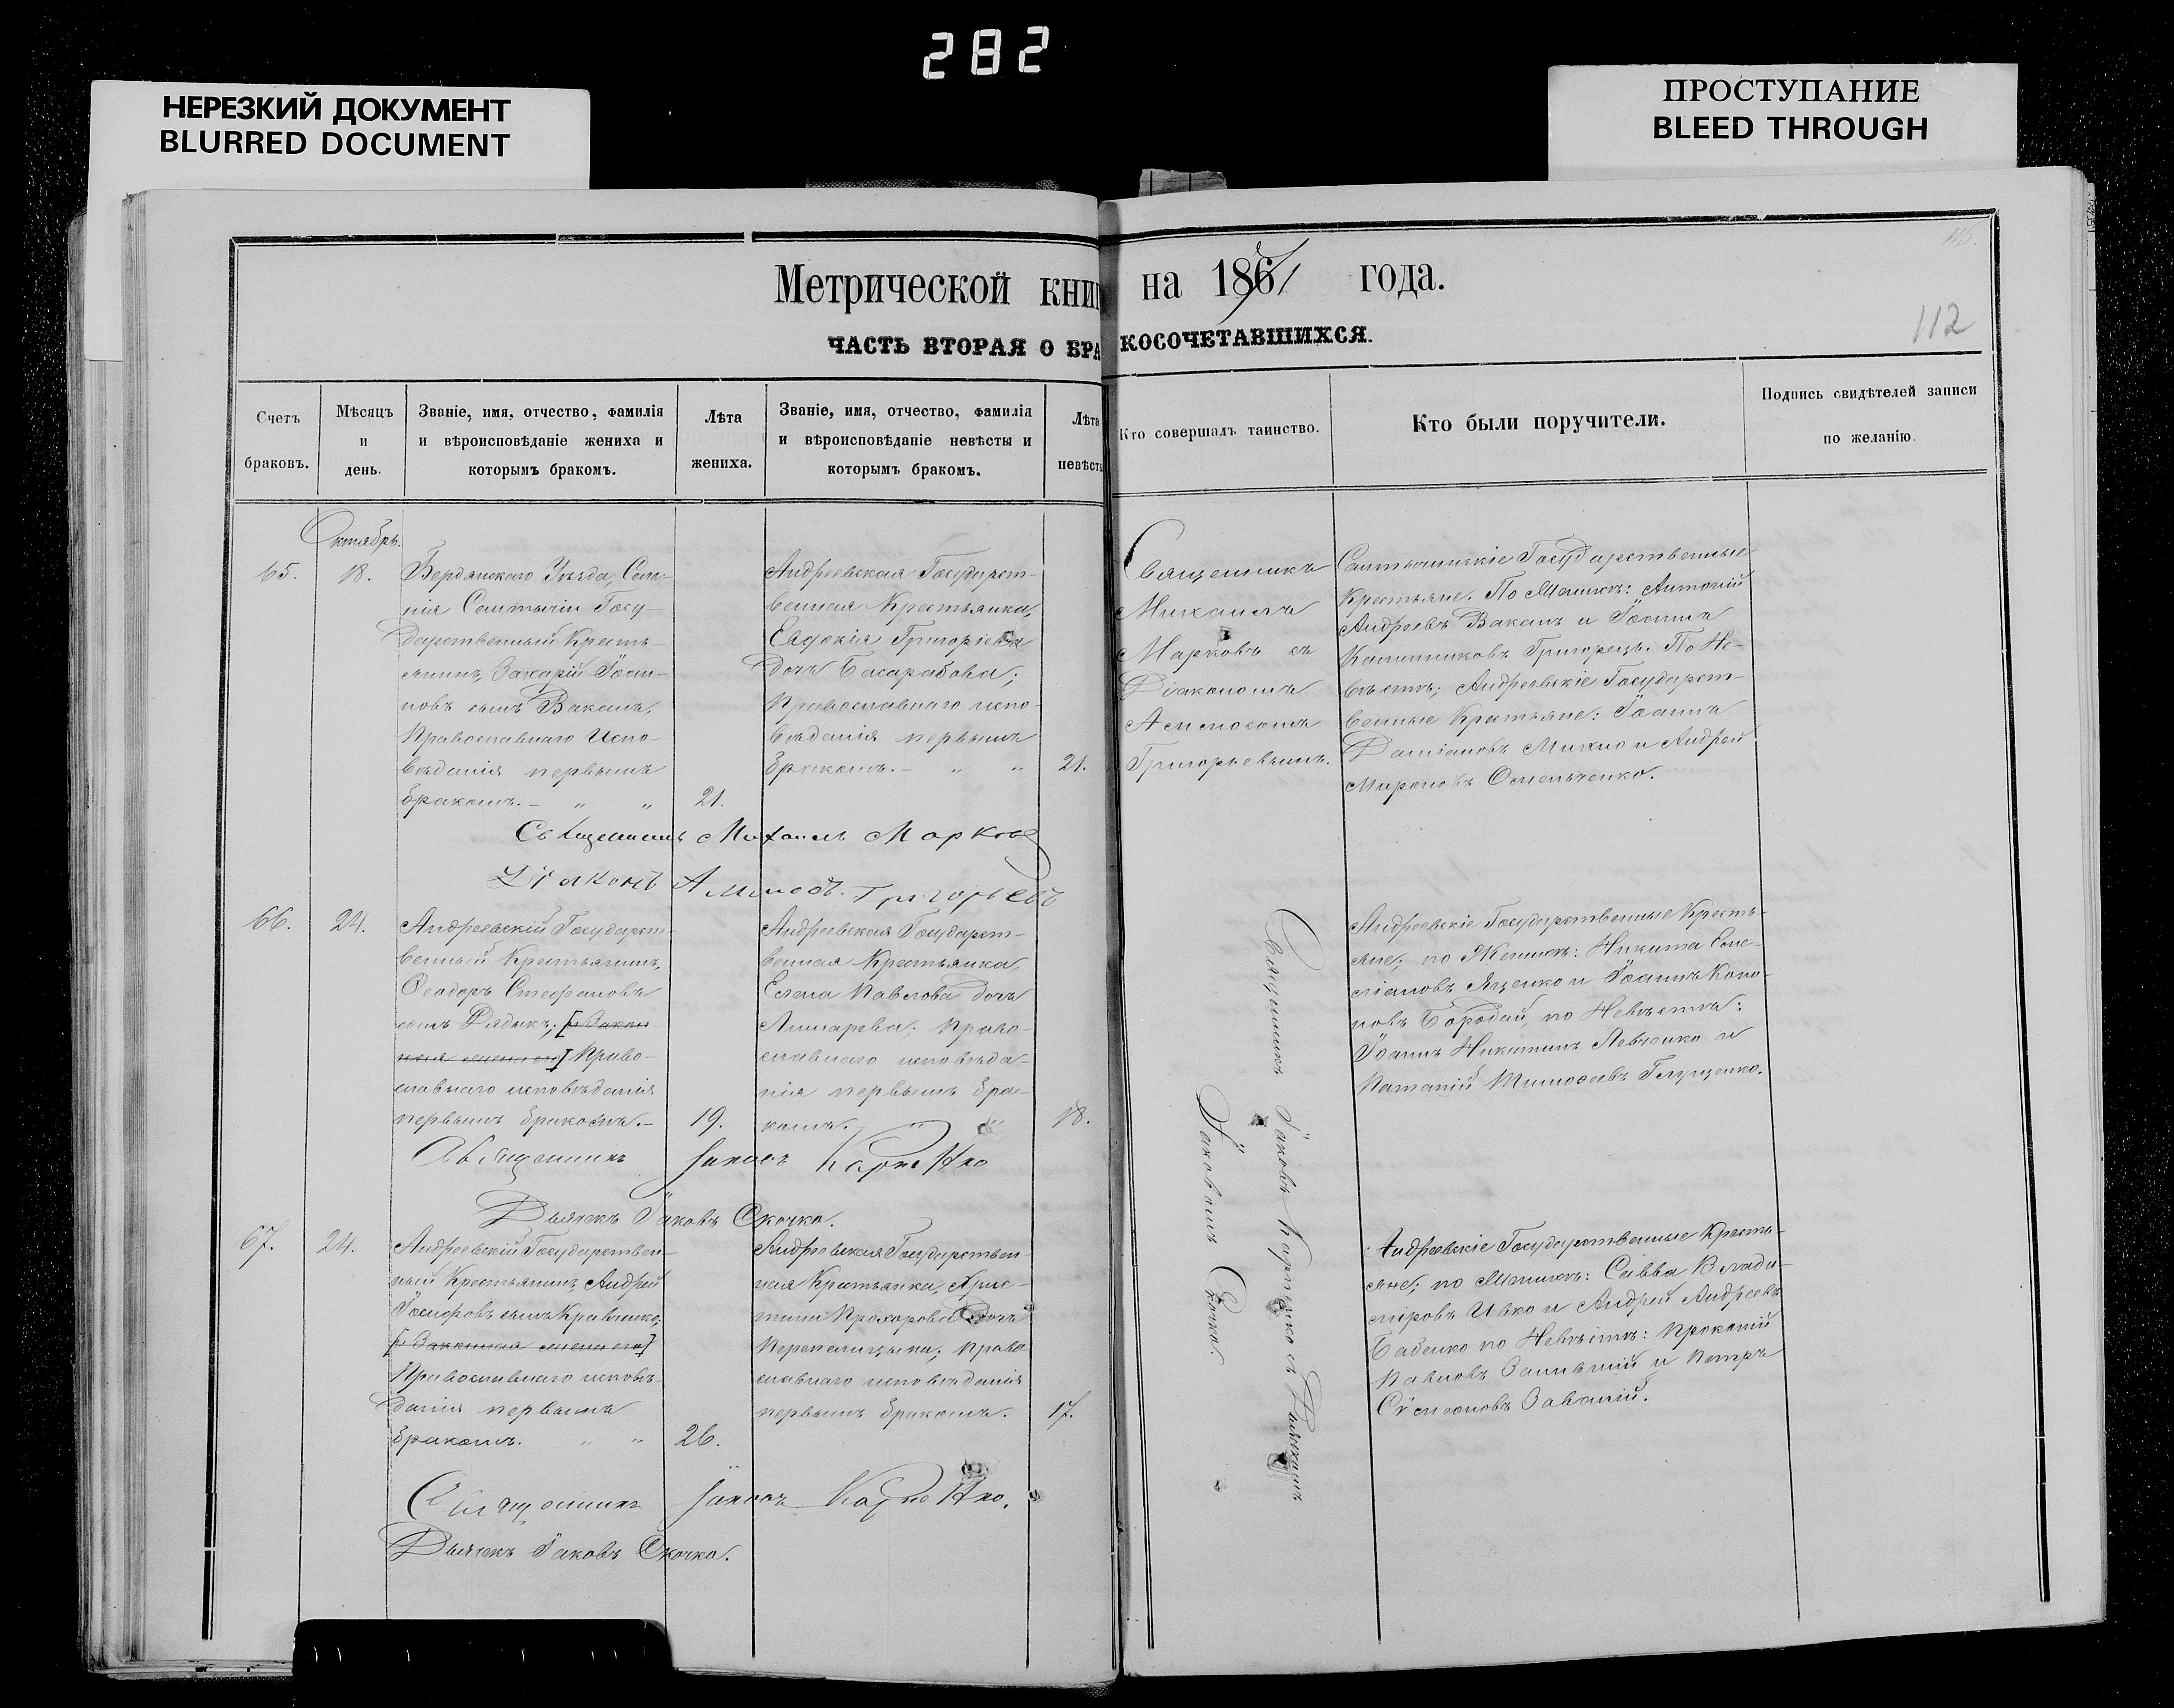 282
НЕРЕЗКИЙ ДОКУМЕНТ
BLURRED DOCUMENT
ПРОСТУПАНИЕ
BLEED THROUGH
Метрической книг на 1861 года.
112
ЧАСТЬ ВТОРАЯ О БРАКОСОЧЕТАВШИХСЯ.
Счетъ
браковъ.
Мѣсяцъ
и
день.
Званіе, имя, отчество, фамилія
и вѣроисповѣданіе жениха и
которымъ бракомъ.
Лѣта
жениха.
Званіе, имя, отчество, фамилія
и вѣроисповѣданіе невѣсты и
которымъ бракомъ.
Лѣта
невѣсты
Кто совершалъ таинство.
Кто были поручители.
Подпись свидѣтелей записи
по желанію.
Октябрь.
65.
18.
Бердянскаго Уѣзда, Сел-
нія Салтычіи Госу-
дарственный Кресть-
янинъ, Захарій Іоан-
новъ сынъ Вакалъ,
Православнаго Испо-
вѣданія первымъ
бракомъ. — " "
21.
Андреевская Государст-
венная Крестьянка,
Евдокія Григоріева
дочь Басарабова;
Православнаго испо-
вѣданія первымъ
бракомъ. — " "
21.
Священникъ
Михаилъ
Марковъ съ
Діакономъ
Григорьевымъ.
Салтычинскіе Государственные
Крестьяне. По Женихѣ: Антоній
Андреевъ Вакалъ и Іоаннъ
Калинниковъ Григорецъ. По Не-
вѣстѣ; Андреевскіе Государст-
венные Крестьяне: Іоаннъ
Даміановъ Михно и Андрей
Мироновъ Омельченко.
Священникъ Михаилъ Марковъ
Діаконъ Григорьевъ
66.
24.
Андреевскій Государст-
венный Крестьянинъ,
Ѳеодоръ Стефановъ
сынъ Дядикъ;
Право-
славнаго исповѣданія
первымъ бракомъ. —
19.
Андреевская Государст-
венная Крестьянка,
Елена Павлова дочь
Право-
славнаго исповѣда-
нія первымъ бра-
комъ. " "
18.
Андреевскіе Государственные Кресть-
яне; по Женихѣ: Никита Еме-
ліановъ Яценко и Іоаннъ Коно-
новъ Бородай, по Невѣстѣ:
Іоаннъ Никитинъ Левченко и
Тимоѳеевъ Глущенко.
Священникъ Іаковъ Карпенко съ Дьячкомъ
Іаковомъ Скочко.
Священникъ Іаковъ Карпенко
Дьячекъ Іаковъ Скочко.
67.
24.
Андреевскій Государствен-
ный Крестьянинъ, Андрей
Іосифовъ сынъ Кравченко,
[и Законная жена его]
Православнаго исповѣ-
данія первымъ
бракомъ. " "
26.
Андреевская Государствен-
ная Крестьянка, Хрис-
тина Прохорова дочь
Перепелицына; Право-
славнаго исповѣданія
первымъ бракомъ.
17.
Андреевскіе Государственные Кресть-
яне; по Женихѣ: Савва Влади-
міровъ Ивко и Андрей Андреевъ
Бабенко по Невѣстѣ: Прокопій
Павловъ и Петръ
Сѵмеоновъ
Священникъ Іаковъ Карпенко.
Дьячекъ Іаковъ Скочко.